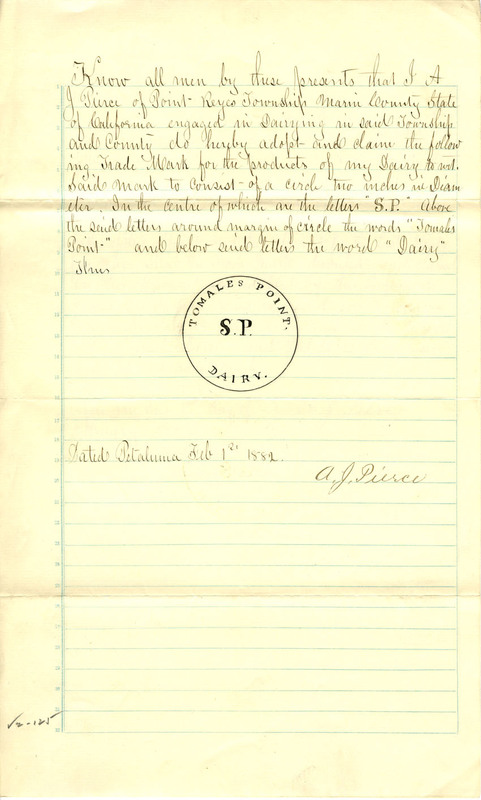 Know all men by these presents that I A
J. Pierce of Point Reyes Township Marin County State
of California engaged in Dairying in said Township
and County do hereby adopt and claim the follow
ing Trade Mark for the products of my Dairy to wit.
Said mark to consist of a circle two inches in Diam
eter. In the centre of which are the letters "S.P." Above
the said letters around margin of circle the words "Tomales
Point" and below said letters the word "Dairy"
Thus
TOMALES POINT.
S.P.
DAIRY.
Dated Petaluma Feb 1st 1882.
A. J. Pierce
√2-125